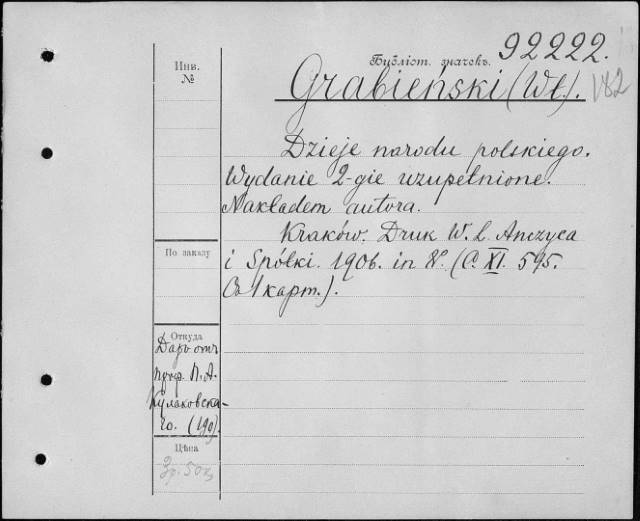 Инв. №
Библіот. значекъ. 92222.
Grabieński (Wł.). 182
Dzieje narodu polskiego.
Wydanie 2-gie uzupełnione.
Nakładem autora.
Kraków. Druk W. L. Anczyca
i Spółki. 1906. in 8º. (С. XI. 595.
Съ 1 карт.).
По заказу
Откуда
Даръ отъ
проф. П. А.
Кулаковска-
го. (190).
Цѣна
3р. 50к.